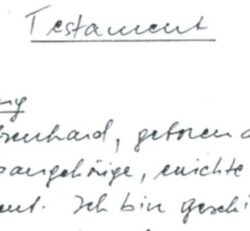 Testament
ng
enhard, geboren a
sangehörige, errichte
ent. Ich bin geschi